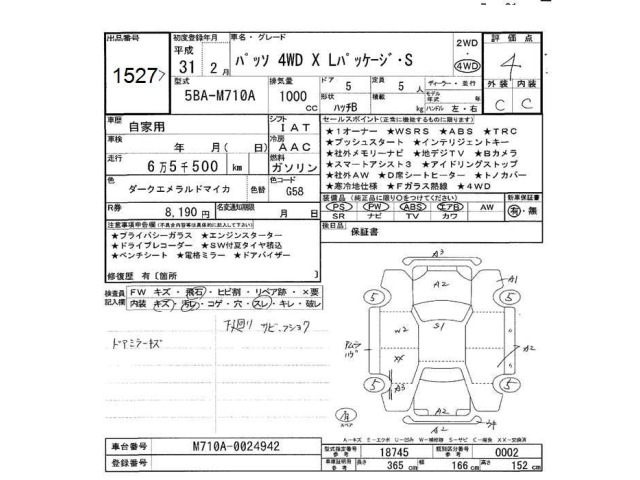 出品番号
1527
初度登録年月
平成
31 2月
車名・グレード
パッソ 4WD X Lパッケージ・S
2WD
・
4WD
評価点
4
外装 内装
C C
型式
5BA-M710A
排気量
1000
CC
ドア
5
定員
5 人
ディーラー・並行
形状
ハッチB
積載
kg
モデル年式 年
ハンドル 左・右
車歴
自家用
シフト
IAT
車検
年 月(日)
冷房
AAC
走行
6万5千500 km
燃料
ガソリン
色
ダークエメラルドマイカ
色替
色コード
G58
R券
8,190円
名変期限
月 日
セールスポイント(正常に機能するものに限ります)
★1オーナー ★WSRS ★ABS ★TRC
★プッシュスタート ★インテリジェントキー
★社外メモリーナビ ★地デジTV ★Bカメラ
★スマートアシスト3 ★アイドリングストップ
★社外AW ★D席シートヒーター ★トノカバー
★寒冷地仕様 ★Fガラス熱線 ★4WD
装備品(純正品に限り○をつけてください)
PS PW ABS エアB AW
SR ナビ TV カワ
新車保証書
有・無
後日品
保証書
注意事項申告欄
★プライバシーガラス ★エンジンスターター
★ドライブレコーダー ★SW付夏タイヤ積込
★ベンチシート ★電格ミラー ★ドアバイザー
修復歴 有〔箇所 〕
検査員記入欄
FW キズ・飛石・ヒビ割・リペア跡・×要
内装 キズ・汚レ・コゲ・穴・スレ・キレ・破レ
下廻り サビ・フショク
ドアミラーキズ
A3
A2
A1
5
5
S1
W2
XX
A2
A3
5
5
A2
A2
スペア
A-キズ E-エクボ U-凹み W-補修跡 S-サビ C-腐食 XX-交換済
車台番号
M710A-0024942
登録番号
型式指定番号 参考
18745
類別区分番号 参考
0002
車庫証明用 参考
長さ 365 cm 幅 166 cm 高さ 152 cm